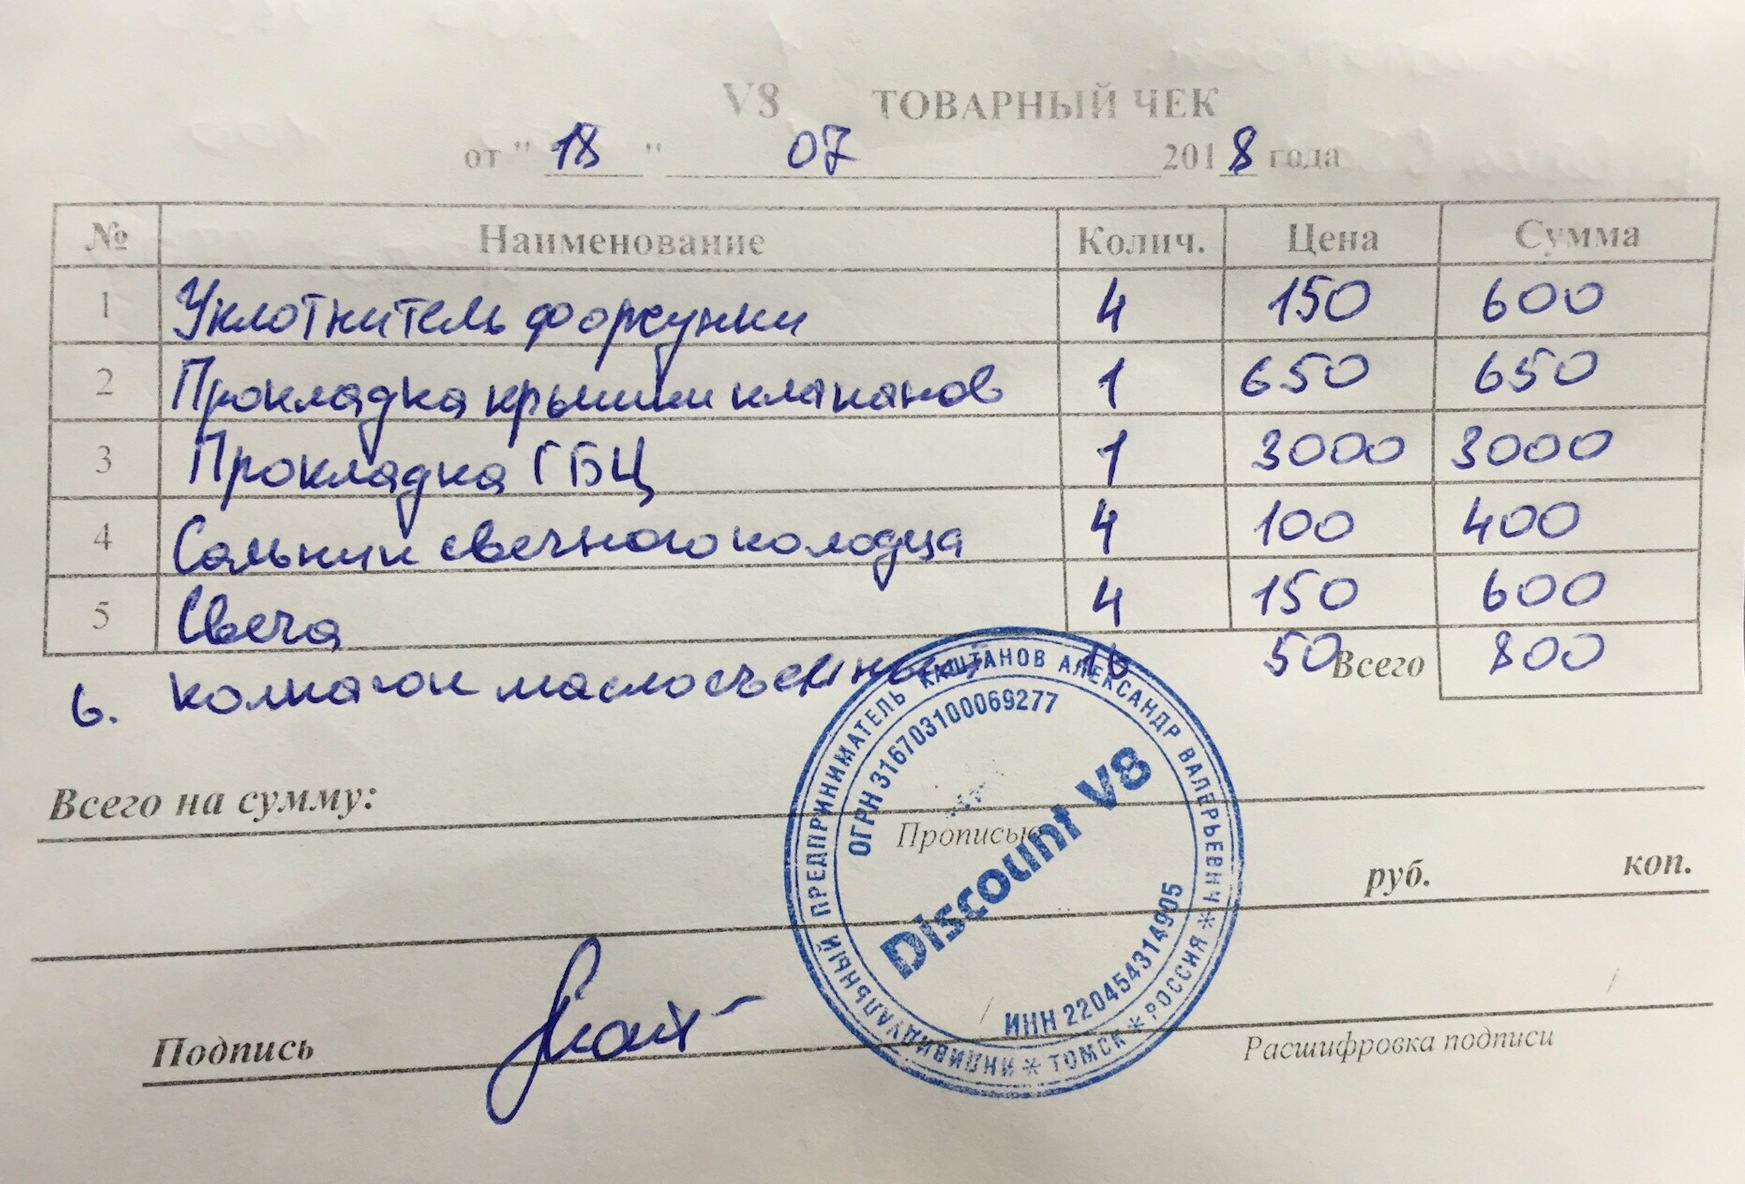 V8 ТОВАРНЫЙ ЧЕК
от " 18 " 07 2018 года
№ Наименование Колич. Цена Сумма
1 Уплотнитель форсунки 4 150 600
2 Прокладка крышки клапанов 1 650 650
3 Прокладка ГБЦ 1 3000 3000
4 Сальник свечного колодца 4 100 400
5 Свеча 4 150 600
6. колпачок маслосъемный 16 50 Всего 800
Всего на сумму:
Прописью
руб. коп.
Подпись
Расшифровка подписи
ИНДИВИДУАЛЬНЫЙ ПРЕДПРИНИМАТЕЛЬ КАШТАНОВ АЛЕКСАНДР ВАЛЕРЬЕВИЧ * РОССИЯ * ТОМСК *
ОГРН 316703100069277
Discount V8
ИНН 220454314905